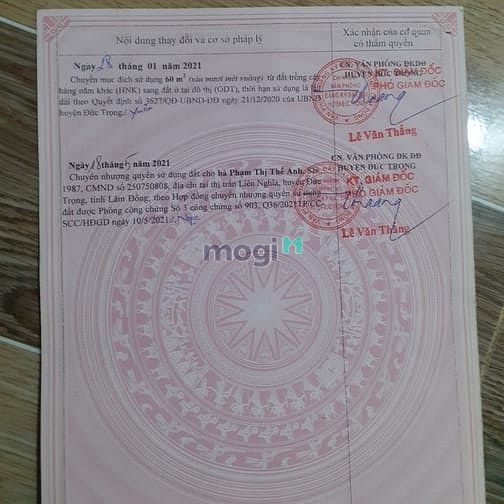 Nội dung thay đổi và cơ sở pháp lý
Xác nhận của cơ quan
có thẩm quyền
Ngày 28 tháng 01 năm 2021
Chuyển mục đích sử dụng 60 m² (sáu mươi mét vuông) từ đất trồng cây
hàng năm khác (HNK) sang đất ở tại đô thị (ODT), thời hạn sử dụng là lâu
dài theo Quyết định số 3627/QĐ-UBND-DĐ ngày 21/12/2020 của UBND
huyện Đức Trọng./.
CN. VĂN PHÒNG ĐKĐĐ
HUYỆN ĐỨC TRỌNG
GIÁM ĐỐC
PHÓ GIÁM ĐỐC
Lê Văn Thắng
Ngày 18 tháng 5 năm 2021
Chuyển nhượng quyền sử dụng đất cho bà Phạm Thị Thế Anh, Sn:
1987, CMND số 250750808, địa chỉ tại thị trấn Liên Nghĩa, huyện Đức
Trọng, tỉnh Lâm Đồng, theo Hợp đồng chuyển nhượng quyền sử dụng
đất được Phòng công chứng Số 3 công chứng số 903, Q36/2021TP/CC-
SCC/HĐGD ngày 10/5/2021./.
CN. VĂN PHÒNG ĐK ĐĐ
HUYỆN ĐỨC TRỌNG
KT. GIÁM ĐỐC
PHÓ GIÁM ĐỐC
Lê Văn Thắng
mogi